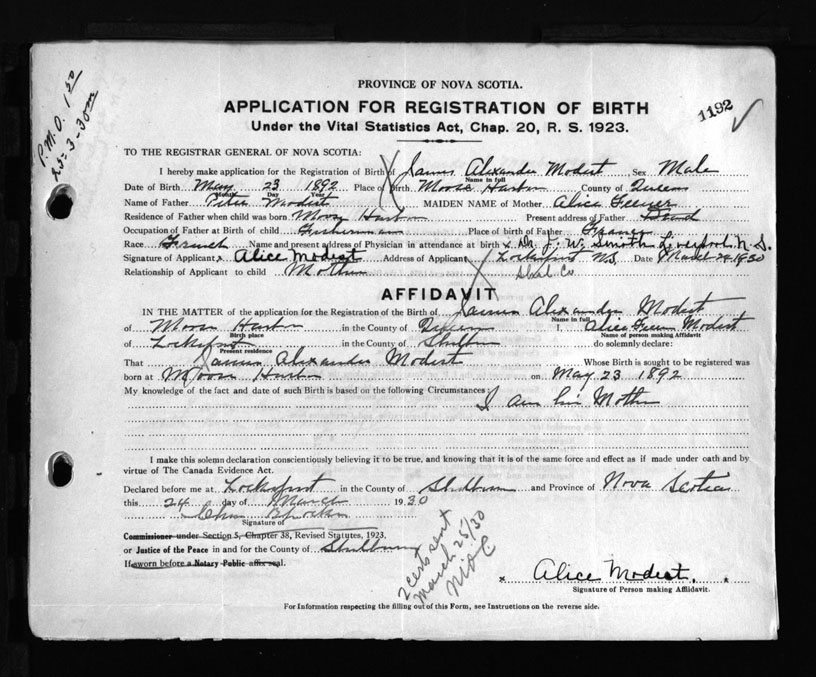 P.M.O. 1 50
25-3-30
PROVINCE OF NOVA SCOTIA.
APPLICATION FOR REGISTRATION OF BIRTH
1192
Under the Vital Statistics Act, Chap. 20, R. S. 1923.
TO THE REGISTRAR GENERAL OF NOVA SCOTIA:
I hereby make application for the Registration of Birth of James Alexander Modest Sex Male
Name in full
Date of Birth May 23 1892 Place of Birth Moose Harbor County of Queens
Month Day Year
Name of Father Modest MAIDEN NAME of Mother Alice
Residence of Father when child was born Moose Harbor Present address of Father Dead
Occupation of Father at Birth of child Fisherman Place of birth of Father France
Race French Name and present address of Physician in attendance at birth x Dr J. W. Smith Liverpool N.S.
Signature of Applicant x Alice Modest Address of Applicant Lockeport N.S. Date March 24 1930
Relationship of Applicant to child Mother Shel Co
AFFIDAVIT
IN THE MATTER of the application for the Registration of the Birth of James Alexander Modest
Name in full
of Moose Harbor in the County of Queens I, Alice Modest
Birth place Name of person making Affidavit
of Lockeport in the County of Shelburne do solemnly declare:
Present residence
That James Alexander Modest Whose Birth is sought to be registered was
born at Moose Harbor on May 23 1892
My knowledge of the fact and date of such Birth is based on the following Circumstances
I am his Mother
I make this solemn declaration conscientiously believing it to be true, and knowing that it is of the same force and effect as if made under oath and by
virtue of The Canada Evidence Act.
Declared before me at Lockeport in the County of Shelburne and Province of Nova Scotia
this 24 day of March 1930
Signature of
Commissioner under Section 5, Chapter 38, Revised Statutes, 1923,
or Justice of the Peace in and for the County of Shelburne
If sworn before a Notary Public affix seal.
2 certs sent
March 25/30
x Alice Modest. x
Signature of Person making Affidavit.
For Information respecting the filling out of this Form, see Instructions on the reverse side.